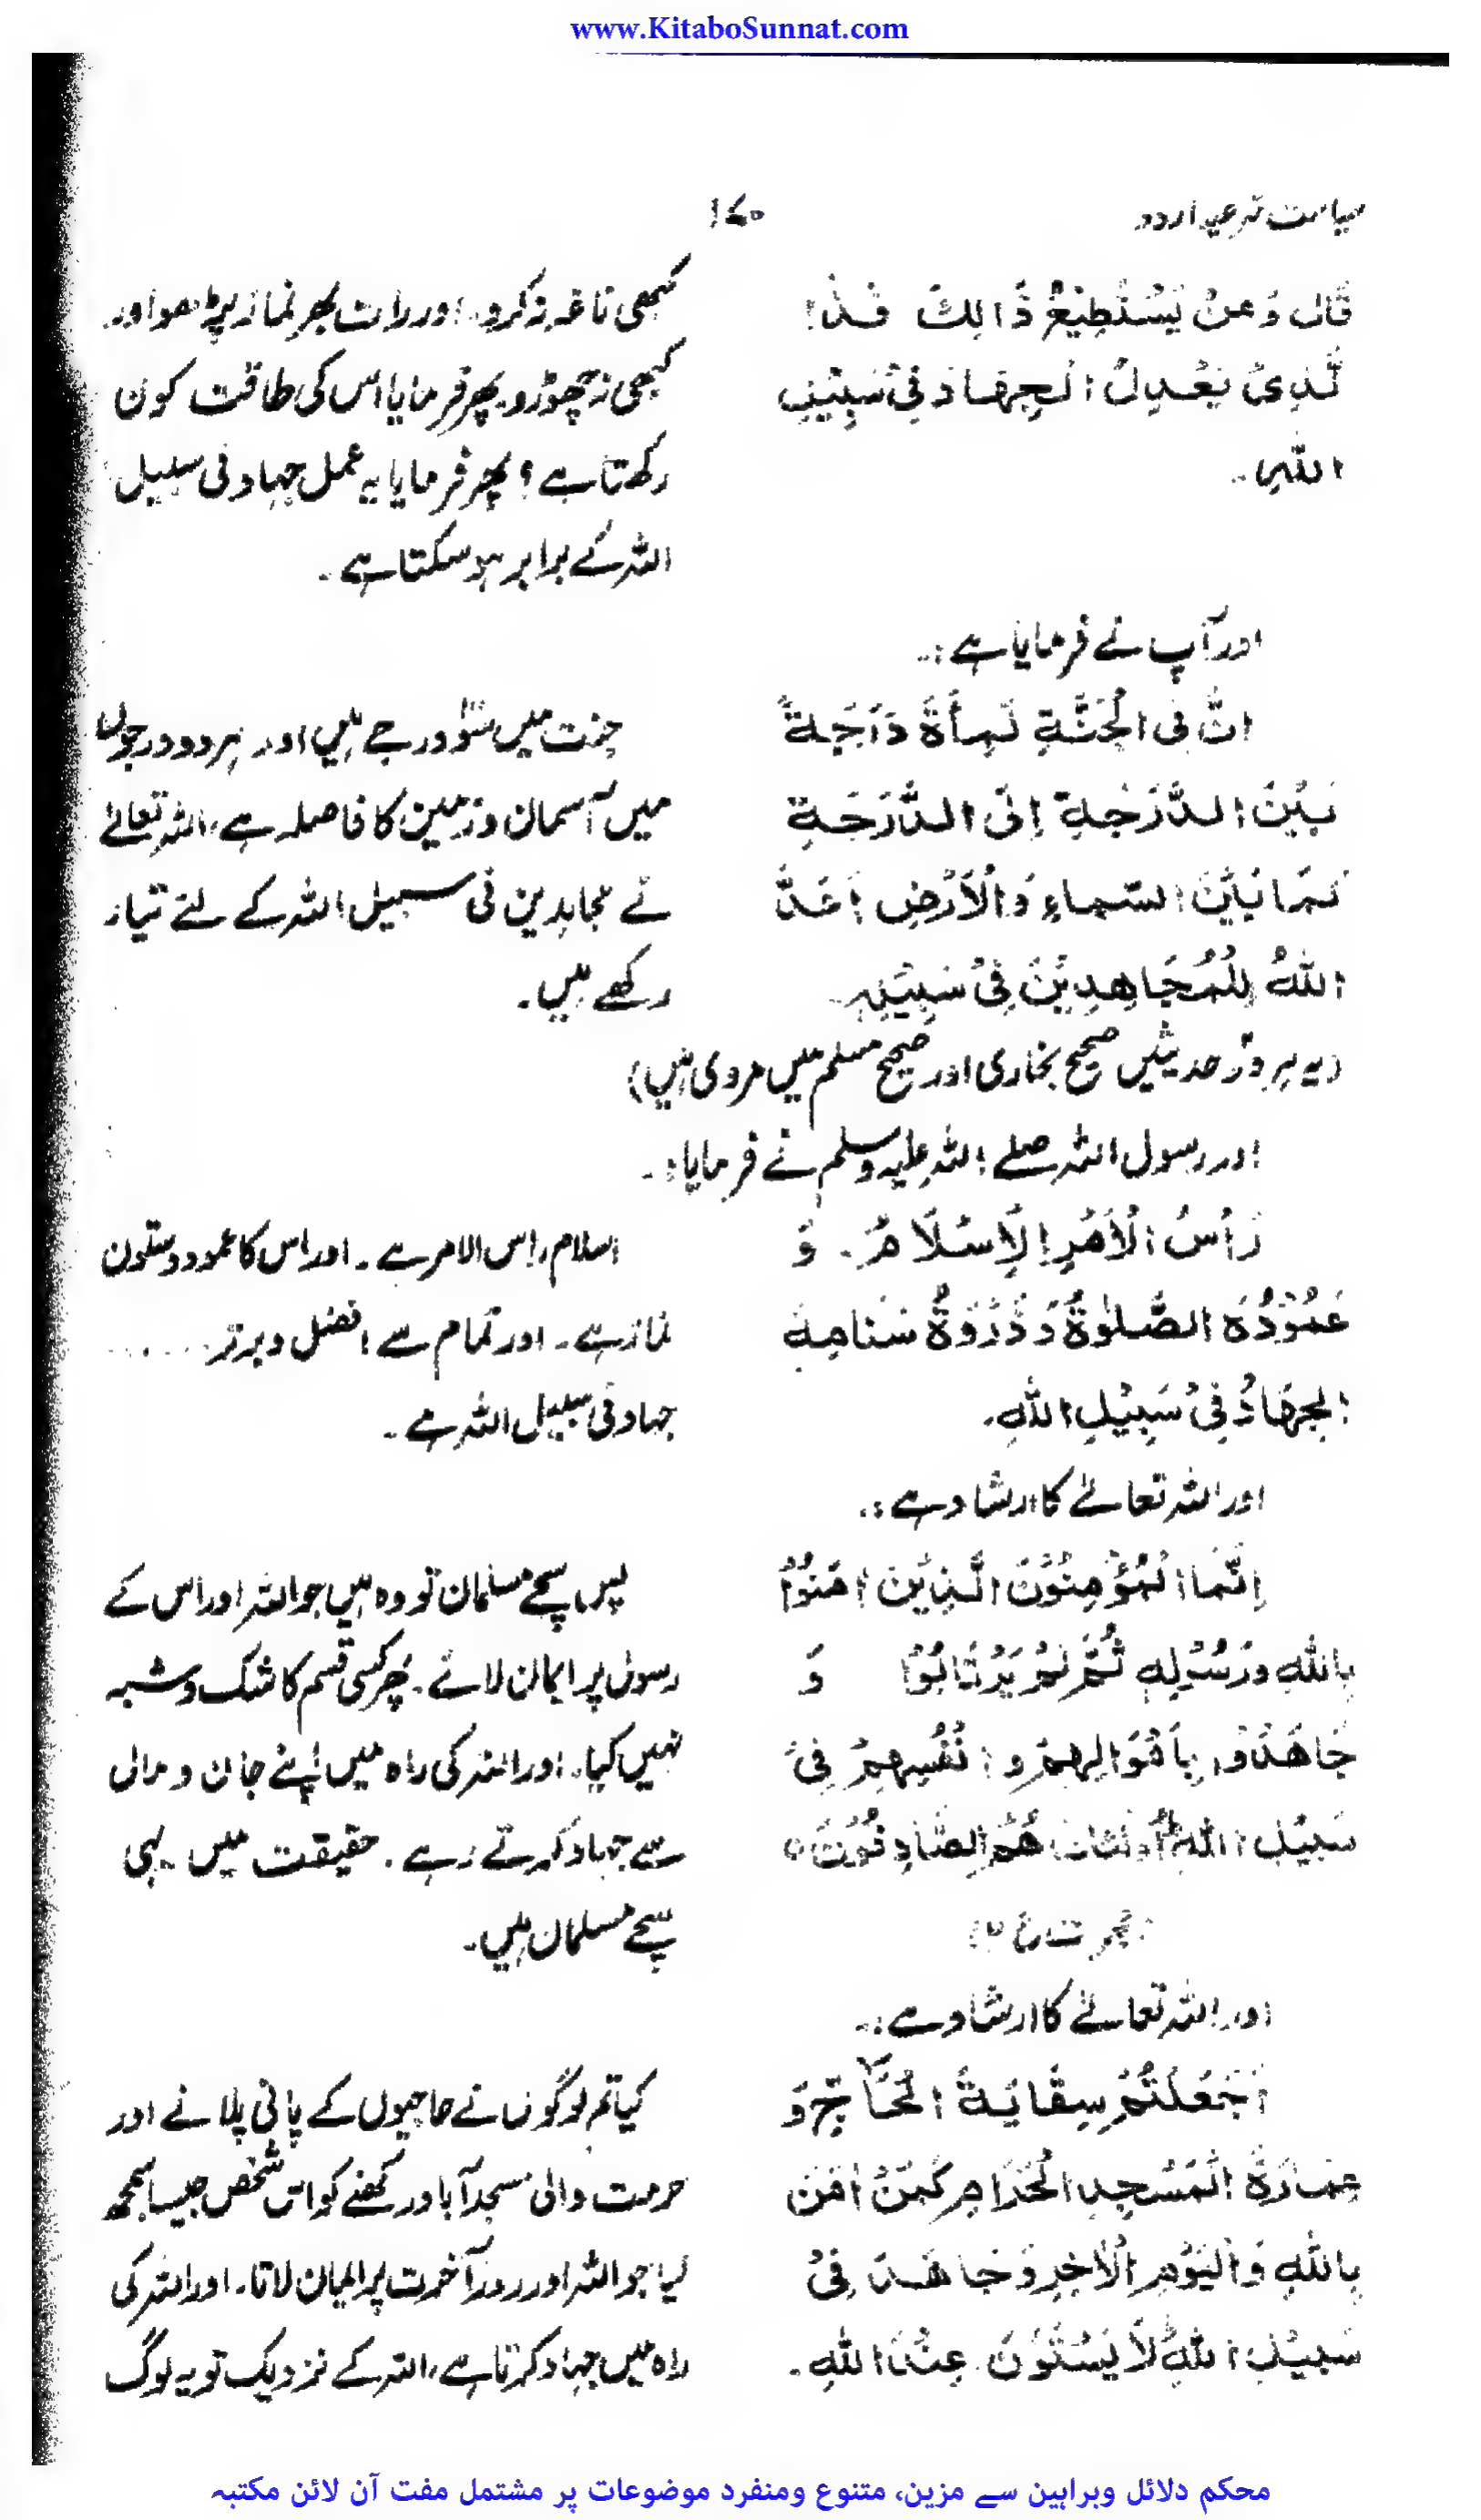 www.KitaboSunnat.com
سیاست شرعیہ اردو
۱۷۰
قَالَ وَمَنْ يَسْتَطِيْعُ ذَالِكَ فَذَا
لَّذِىْ يَعْدِلُ الْجِهَادَ فِىْ سَبِيْلِ
اللّٰهِ۔
کبھی ناغہ نہ کرو۔ اور رات بھر نماز پڑھو اور
کبھی نہ چھوڑو۔ پھر فرمایا اس کی طاقت کون
رکھتا ہے؟ پھر فرمایا یہ عمل جہاد فی سبیل
اللہ کے برابر ہو سکتا ہے۔
اور آپ نے فرمایا ہے:۔
اِنَّ فِى الْجَنَّةِ لَمِأَةَ دَرَجَةً
بَيْنَ الدَّرَجَةِ اِلَى الدَّرَجَةِ
كَمَا بَيْنَ السَّمَاءِ وَالْاَرْضِ اَعَدَّ
اللّٰهُ لِلْمُجَاهِدِيْنَ فِىْ سَبِيْلِهٖ۔
جنت میں سو درجے ہیں اور ہر دو درجوں
میں آسمان و زمین کا فاصلہ ہے، اللہ تعالےٰ
نے مجاہدین فی سبیل اللہ کے لئے تیار
رکھے ہیں۔
(یہ ہر دو حدیثیں صحیح بخاری اور صحیح مسلم میں مروی ہیں)
اور رسول اللہ صلے اللہ علیہ وسلم نے فرمایا:۔
رَاْسُ الْاَمْرِ الْاِسْلَامُ۔ وَ
عَمُوْدُهُ الصَّلٰوةُ وَذُرْوَةُ سَنَامِهٖ
الْجِهَادُ فِىْ سَبِيْلِ اللّٰهِ۔
اسلام راس الامر ہے۔ اور اس کا عمود و ستون
نماز ہے۔ اور تمام سے افضل و برتر ......
جہاد فی سبیل اللہ ہے۔
اور اللہ تعالےٰ کا ارشاد ہے:۔
اِنَّمَا الْمُؤْمِنُوْنَ الَّذِيْنَ اٰمَنُوْا
بِاللّٰهِ وَرَسُوْلِهٖ ثُمَّ لَمْ يَرْتَابُوْا وَ
جَاهَدُوْا بِاَمْوَالِهِمْ وَ اَنْفُسِهِمْ فِىْ
سَبِيْلِ اللّٰهِ اُولٰئِكَ هُمُ الصَّادِقُوْنَ ۝
(حجرات ع ۲)
پس سچے مسلمان تو وہ ہیں جو اللہ اور اس کے
رسول پر ایمان لائے۔ پھر کسی قسم کا شک و شبہ
نہیں کیا۔ اور اللہ کی راہ میں اپنے جان و مال
سے جہاد کرتے رہے۔ حقیقت میں یہی
سچے مسلمان ہیں۔
اور اللہ تعالےٰ کا ارشاد ہے:۔
اَجَعَلْتُمْ سِقَايَةَ الْحَآجِّ وَ
عِمَارَةَ الْمَسْجِدِ الْحَرَامِ كَمَنْ اٰمَنَ
بِاللّٰهِ وَالْيَوْمِ الْاٰخِرِ وَجَاهَدَ فِىْ
سَبِيْلِ اللّٰهِ لَا يَسْتَوٗنَ عِنْدَ اللّٰهِ۔
کیا تم لوگوں نے حاجیوں کے پانی پلانے اور
حرمت والی مسجد آباد رکھنے کو اس شخص جیسا سمجھ
لیا جو اللہ اور روز آخرت پر ایمان لاتا۔ اور اللہ کی
راہ میں جہاد کرتا ہے، اللہ کے نزدیک تو یہ لوگ
محکم دلائل وبراہین سے مزین، متنوع ومنفرد موضوعات پر مشتمل مفت آن لائن مکتبہ